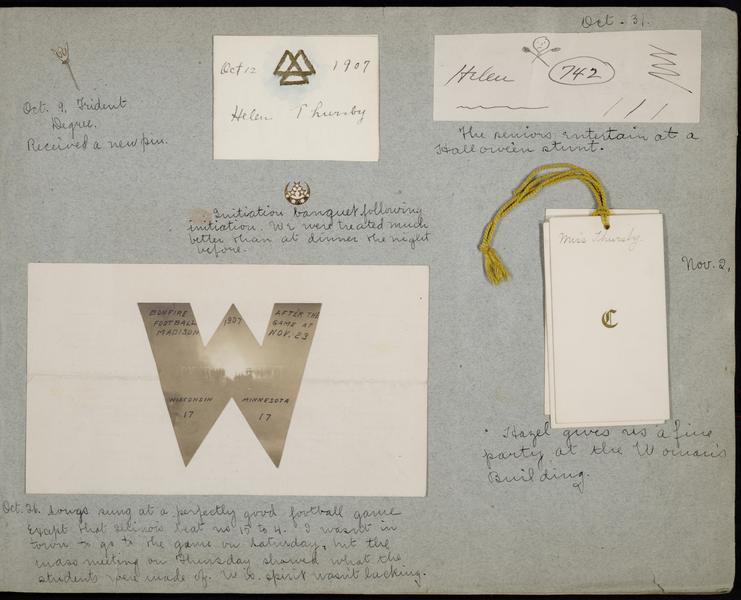 Oct. 9, Trident
Degree.
Received a new pin.
Oct 12 1907
Helen Thursby
Initiation banquet following
initiation. We were treated much
better than at dinner the night
before.
Oct. 31.
Helen 742
The seniors entertain at a
Halloween stunt.
Miss Thursby.
C
Nov. 2,
Hazel gives us a fine
party at the Woman's
Building.
BONFIRE
FOOTBALL
MADISON
1907
AFTER THE
GAME AT
NOV. 23
WISCONSIN
17
MINNESOTA
17
Oct. 26. Songs sung at a perfectly good football game
except that Illinois beat us 15 to 4. I wasn't in
town to go to the game on Saturday, but the
mass meeting on Thursday showed what the
students were made of. Wis. spirit wasn't lacking.